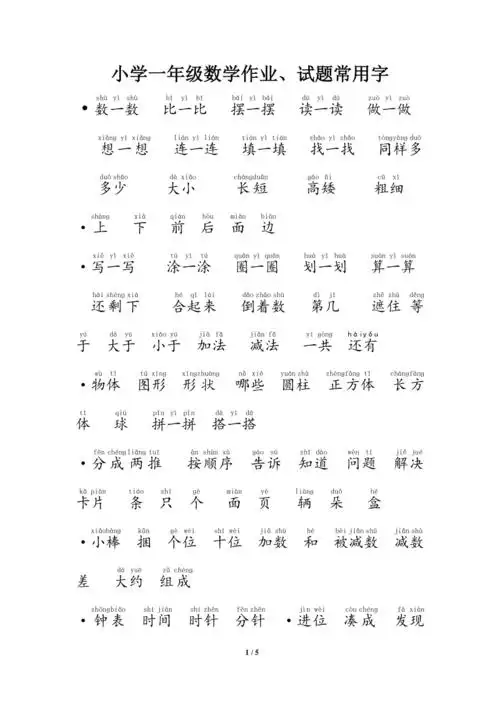 小学一年级数学作业、试题常用字
shǔ yì shǔ bǐ yì bǐ bǎi yì bǎi dú yì dú zuò yí zuò
• 数一数 比一比 摆一摆 读一读 做一做
xiǎng yì xiǎng lián yì lián tián yì tián zhǎo yì zhǎo tóngyàng duō
想一想 连一连 填一填 找一找 同样多
duō shǎo dà xiǎo chángduǎn gāo ǎi cū xì
多少 大小 长短 高矮 粗细
shàng xià qián hòu miàn biān
• 上 下 前 后 面 边
xiě yì xiě tú yì tú quān yì quān huà yi huà suàn yi suàn
• 写一写 涂一涂 圈一圈 划一划 算一算
hái shèng xià hé qǐ lái dào zháo shù dì jǐ zhē zhù děng
还剩下 合起来 倒着数 第几 遮住 等
yú dà yú xiǎo yú jiā fǎ jiǎn fǎ yí gòng háiyǒu
于 大于 小于 加法 减法 一共 还有
wù tǐ tú xíng xíngzhuàng nǎ xiē yuán zhù zhèngfāng tǐ chángfāng
• 物体 图形 形状 哪些 圆柱 正方体 长方
tǐ qiú pīn yì pīn dā yi dā
体 球 拼一拼 搭一搭
fēn chéng liǎng tuī àn shùn xù gào sù zhī dào wèn tí jiě jué
• 分成两推 按顺序 告诉 知道 问题 解决
kǎ piàn tiáo zhī gè miàn yè liàng duǒ hé
卡片 条 只 个 面 页 辆 朵 盒
xiǎobàng kǔn gè wèi shí wèi jiā shù hé bèi jiǎn shù jiǎn shù
• 小棒 捆 个位 十位 加数 和 被减数 减数
dà yuē zǔ chéng
差 大约 组成
zhōngbiǎo shí jiān shí zhēn fēn zhēn jìn wèi còu chéng fā xiàn
• 钟表 时间 时针 分针 • 进位 凑成 发现
1 / 5